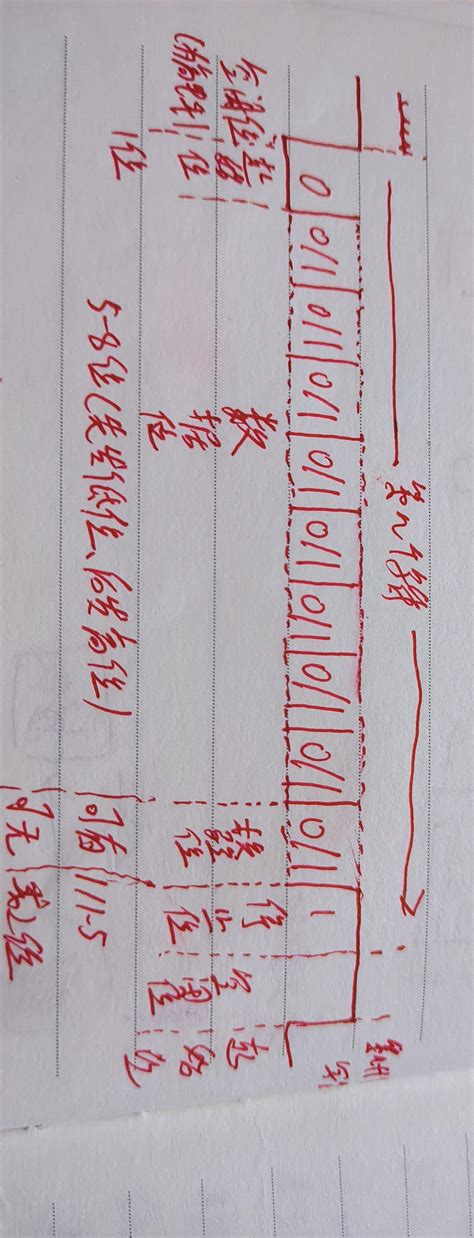 第n个字符
0 0/1 0/1 0/1 0/1 0/1 0/1 0/1 0/1 0/1 1
空闲位 起始位 数据位 校验位 停止位 空闲位 起始位
(为高电平)
1位 5-8位(先发低位、后发高位) 可有 1/1.5
可无 或2位